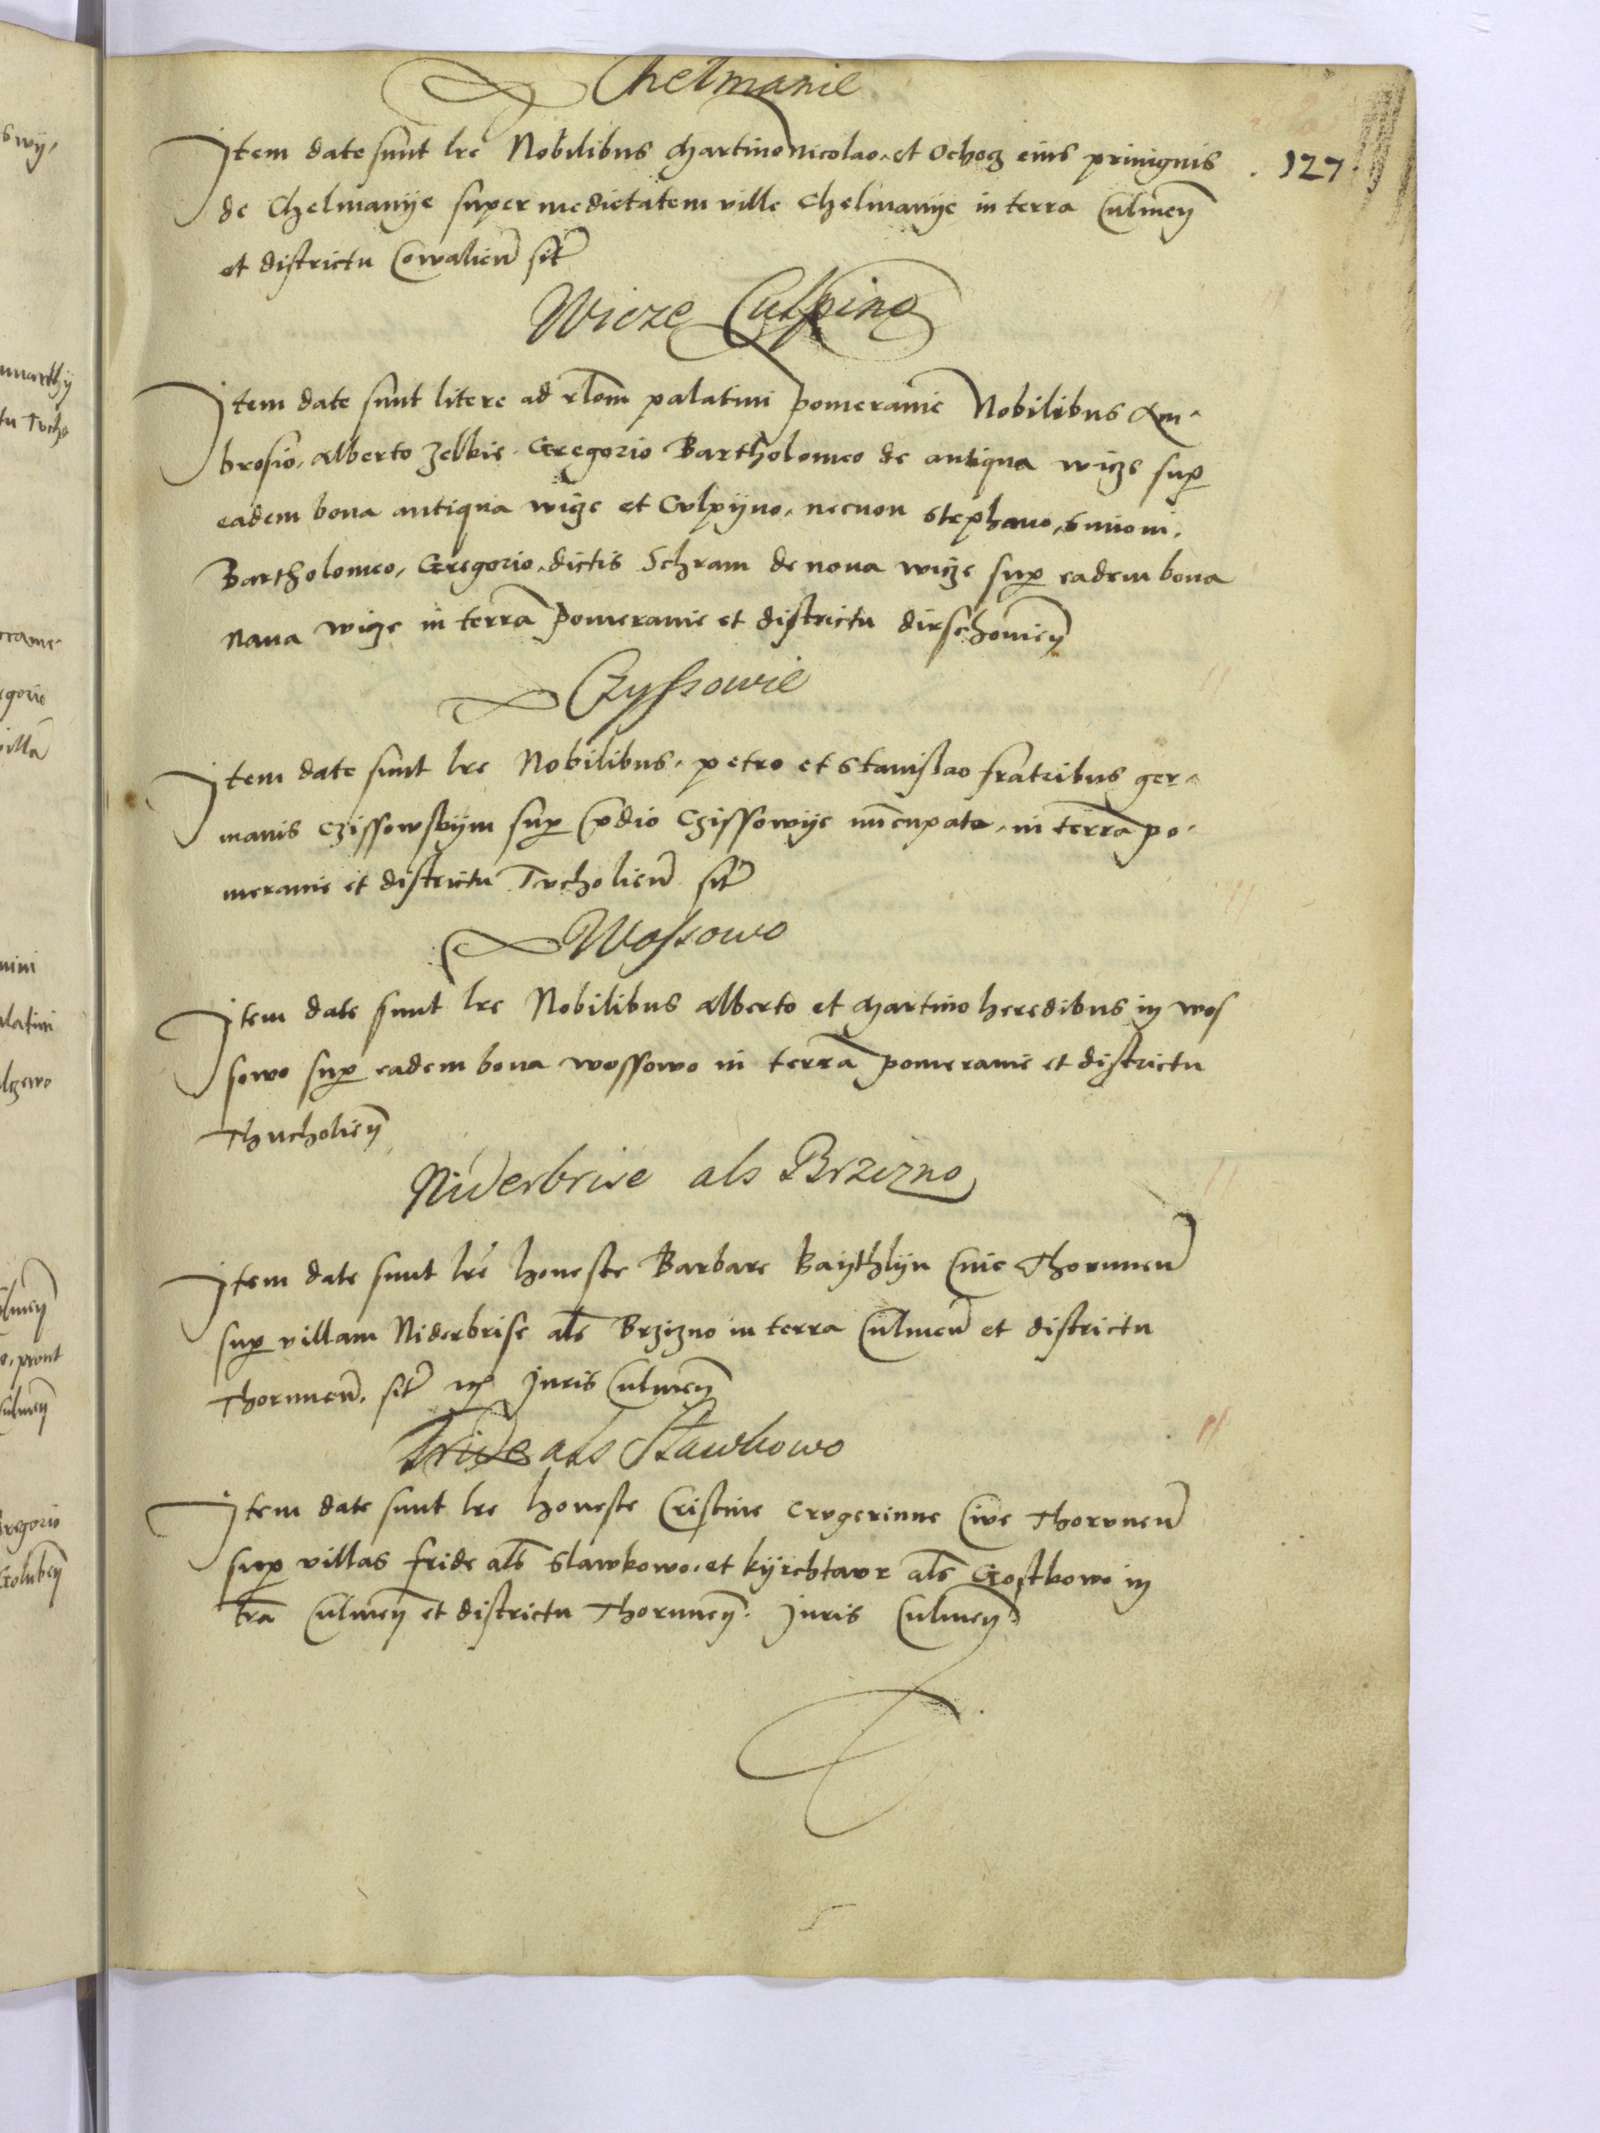 Chelmanie
Item date sunt lre Nobilibus Martino Nicolao et Ochog eius priuignis
. 127.
de Chelmanye super medietatem ville Chelmanye in terra Culmen
et districtu Cowalien sit
Wieze Culpino
Item date sunt litere ad rlom palatini pomeranie Nobilibus Am-
brosio, Alberto Zelkie Gregorio Bartholomeo de antiqua wize sup
eadem bona antiqua wize et Culpyno, necnon Stephano, Simoni,
Bartholomeo, Gregorio, dictis Schram de noua wicze sup eadem bona
naua wize in terra Pomeranie et districtu dirschouien
Czyssowie
Item date sunt lre Nobilibus, petro et Stanislao fratribus ger-
manis Czissowskym sup predio Czissowye nuncupato, in terra po-
meranie et districtu Tucholien sit
Wossowo
Item date sunt lre Nobilibus Alberto et Martino heredibus in wos
sowo sup eadem bona wossowo in terra pomeranie et districtu
Thucholien
Niderbrise als Brzizno
Item date sunt lre honeste Barbare Baythlyn Ciui Thorunen
sup villam Niderbrise als Brzizno in terra Culmen et districtu
Thorunen, sit Juris Culmen
Fride als Slawkowo
Item date sunt lre honeste Cristine Crugerinne Ciue Thorunen
sup villas fride als Slawkowo, et kyrchtaur als Gostkowo in
tra Culmen et districtu Thorunen. Juris Culmen